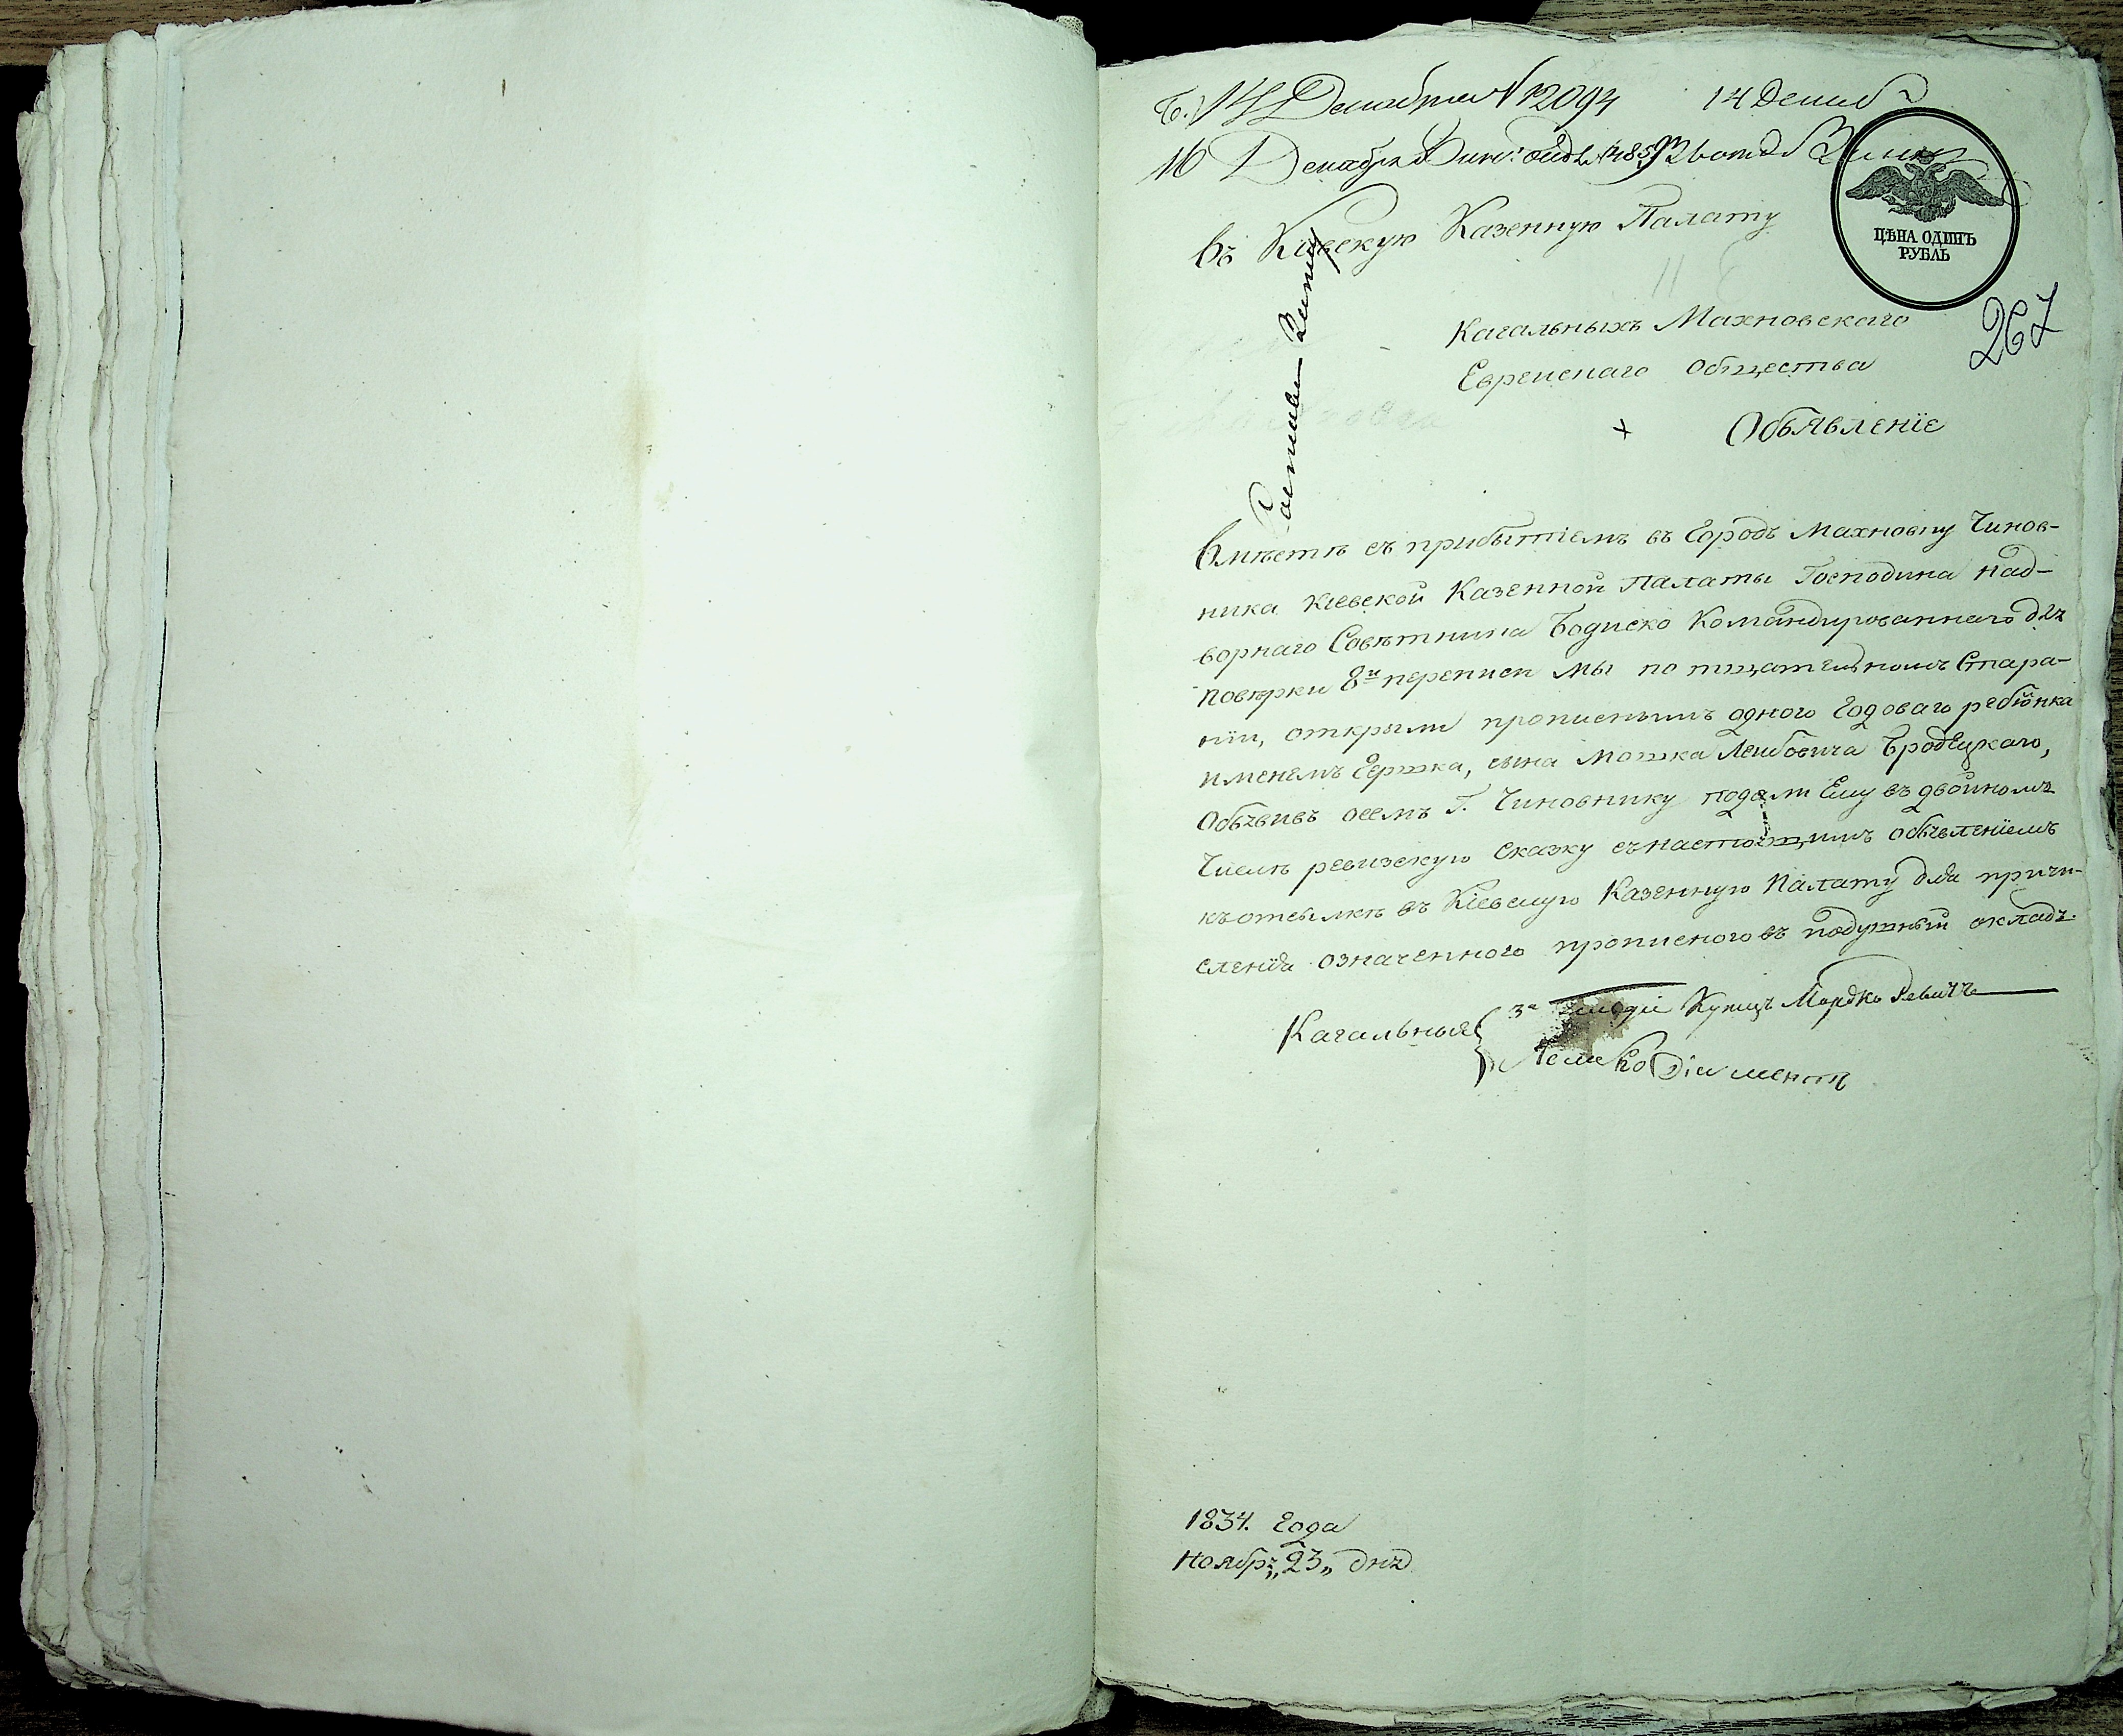 14 Декабря № 12094 14 Декаб
16 Декабря
въ Кіевскую Казенную Палату
ЦѢНА ОДИНЪ
РУБЛЬ
267
Кагальныхъ Махновскаго
Еврейскаго Общества
Объявленіе
Вмѣстѣ съ прибытіемъ въ Городъ Махновку Чинов-
ника Кіевской Казенной Палаты Господина Над-
ворнаго Совѣтника Бодиско Командированнаго для
повѣрки 8й переписи Мы по тщательномъ Стара-
ніи, открыли прописнымъ одного Годоваго ребіонка
именемъ Гершка, сына Мошка Лейбовича Бродецкаго,
Объявивъ осемъ Г. Чиновнику подали Ему въ двойномъ
Числѣ ревизскую сказку съ настоящимъ объявленіемъ
къ отсылкѣ въ Кіевскую Казенную Палату для причи-
сленія означенного прописного въ подушный окладъ.
Кагальныя 3й гильдіи Купецъ Мордко Ревичъ
Діаментъ
1834. Года
Ноября „23„ дня